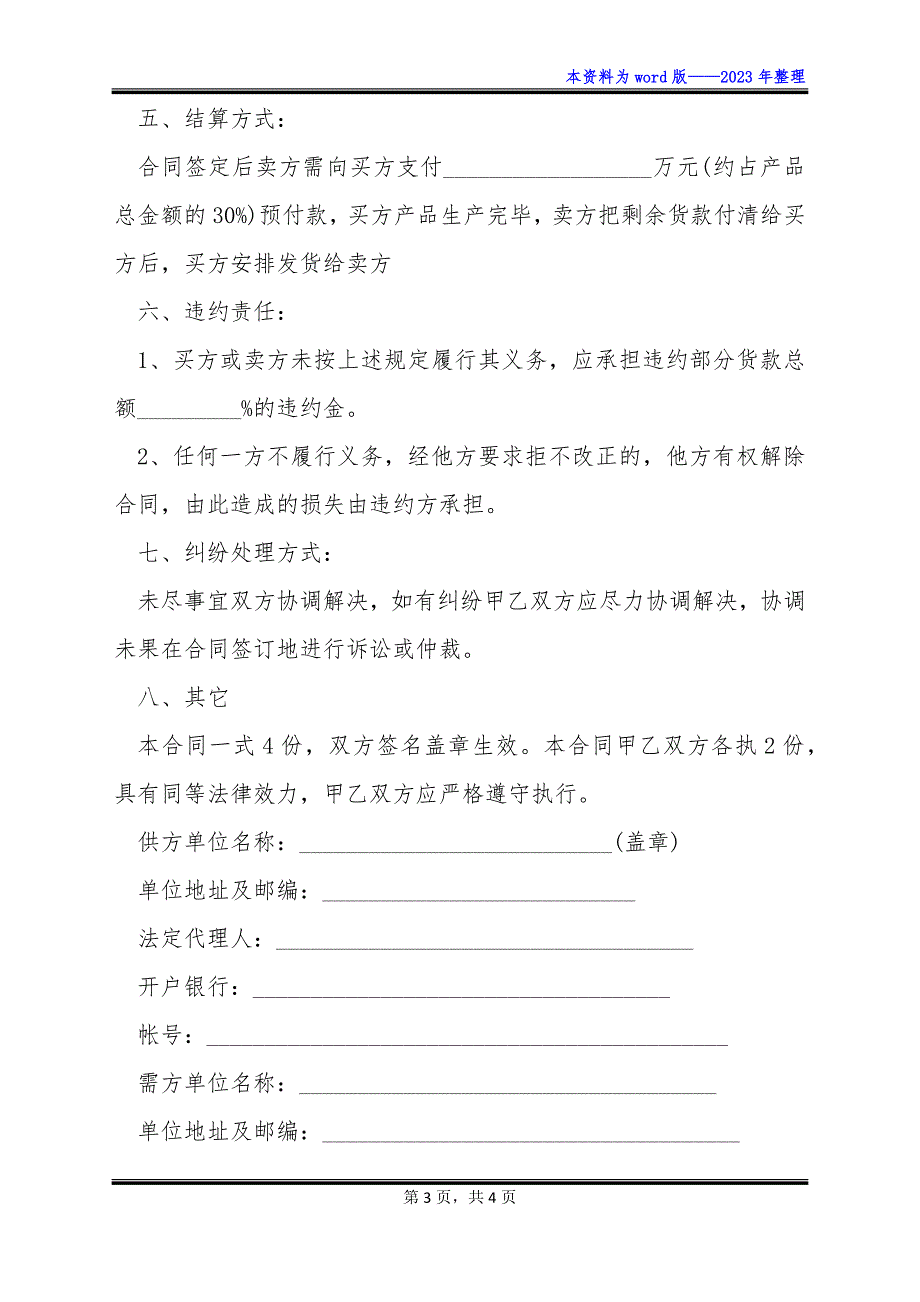 本资料为 word 版——2023 年整理
五、结算方式：
合同签定后卖方需向买方支付__________________万元(约占产品
总金额的 30%)预付款，买方产品生产完毕，卖方把剩余货款付清给买
方后，买方安排发货给卖方
六、违约责任：
1、买方或卖方未按上述规定履行其义务，应承担违约部分货款总
额_________%的违约金。
2、任何一方不履行义务，经他方要求拒不改正的，他方有权解除
合同，由此造成的损失由违约方承担。
七、纠纷处理方式：
未尽事宜双方协调解决，如有纠纷甲乙双方应尽力协调解决，协调
未果在合同签订地进行诉讼或仲裁。
八、其它
本合同一式 4 份，双方签名盖章生效。本合同甲乙双方各执 2 份，
具有同等法律效力，甲乙双方应严格遵守执行。
供方单位名称：___________________________(盖章)
单位地址及邮编：___________________________
法定代理人：____________________________________
开户银行：____________________________________
帐号：_____________________________________________
需方单位名称：____________________________________
单位地址及邮编：____________________________________
第 3 页，共 4 页